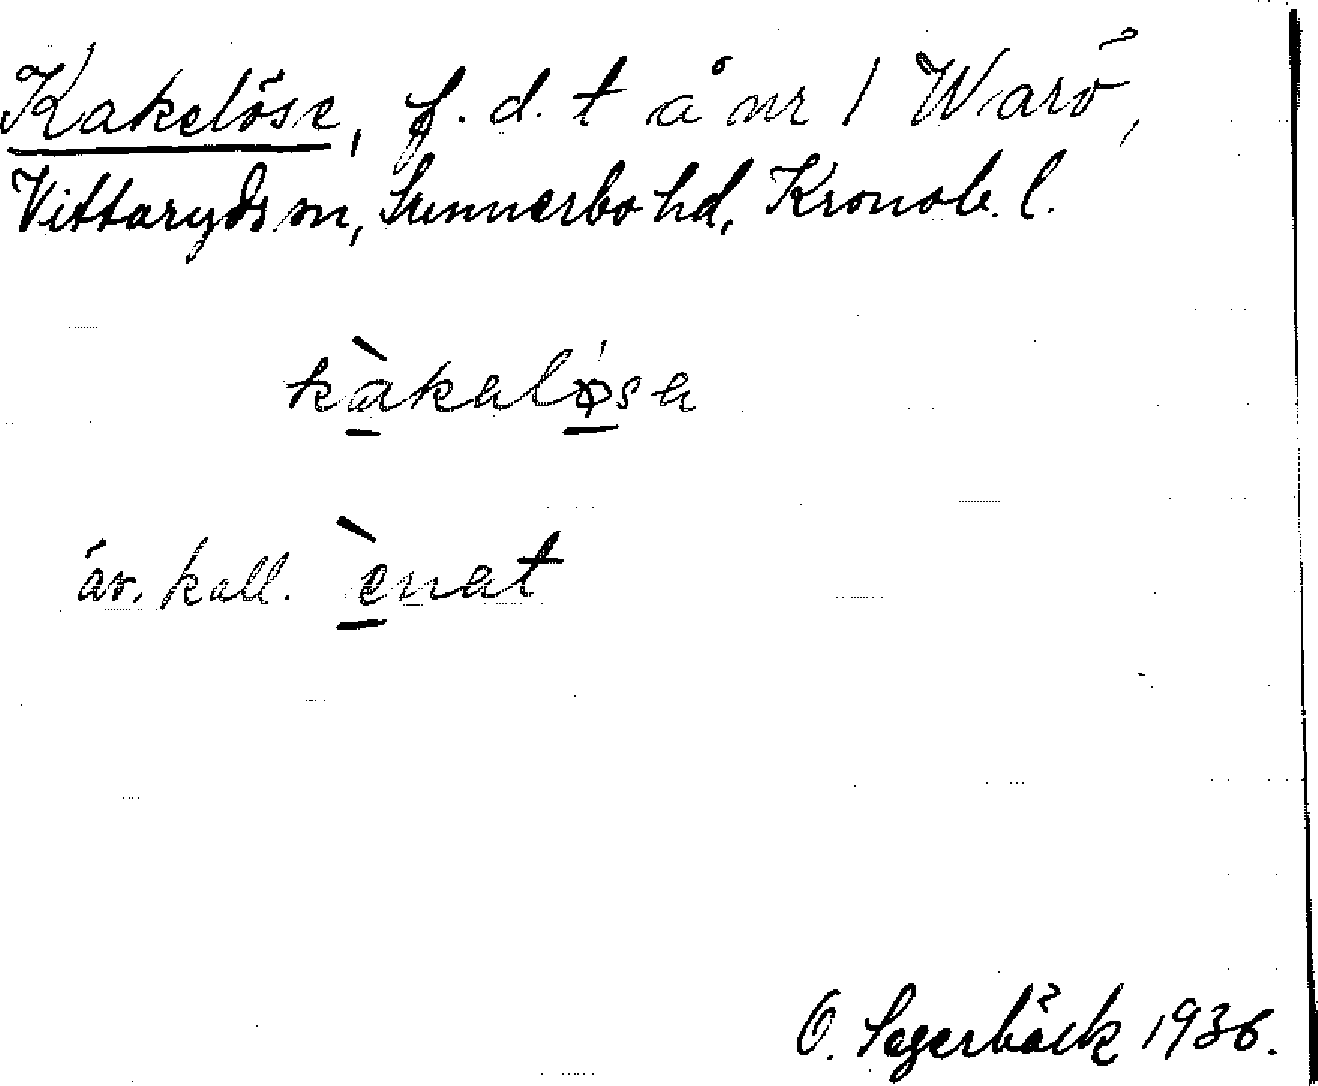 Kakelöse, f. d. t å nr 1 Warö,
Vittaryds sn, Sunnerbo hd, Kronob. l.
kàkaløsa
äv. kall. ènat
O. Segerbäck 1936.